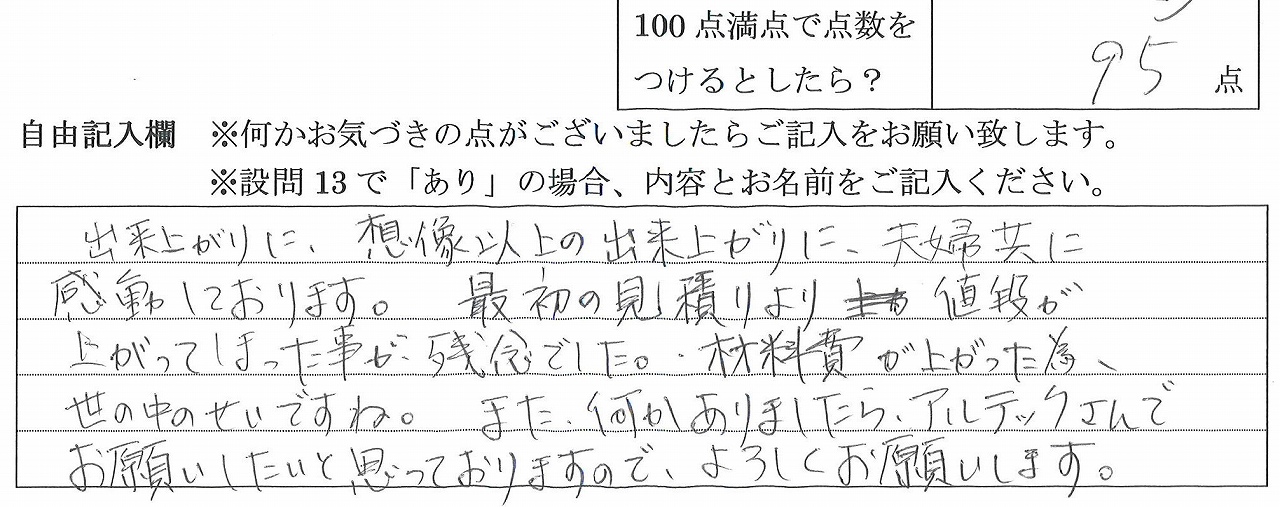 100点満点で点数を
つけるとしたら？
95 点
自由記入欄 ※何かお気づきの点がございましたらご記入をお願い致します。
※設問13で「あり」の場合、内容とお名前をご記入ください。
出来上がりに、想像以上の出来上がりに、夫婦共に
感動しております。 最初の見積りより 値段が
上がってしまった事が、残念でした。・材料費が上がった為、
世の中のせいですね。 また、何かありましたら、アルテックさんで
お願いしたいと思っておりますので、よろしくお願いします。